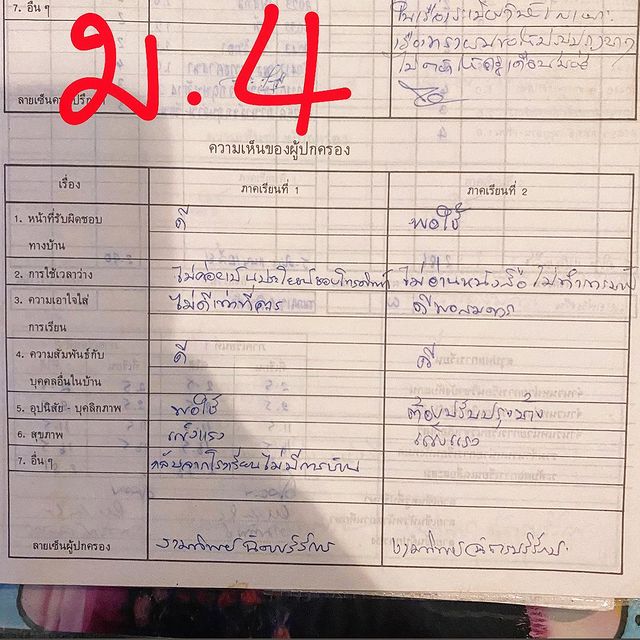 7. อื่น ๆ
ม.4
ลายเซ็นครูที่ปรึกษา
ความเห็นของผู้ปกครอง
เรื่อง ภาคเรียนที่ 1 ภาคเรียนที่ 2
1. หน้าที่รับผิดชอบ ดี พอใช้
ทางบ้าน
2. การใช้เวลาว่าง ไม่ค่อยเป็นประโยชน์ชอบโทรศัพท์ ไม่อ่านหนังสือ ไม่ทำการบ้าน
3. ความเอาใจใส่ ไม่ดีเท่าที่ควร ดีพอสมควร
การเรียน
4. ความสัมพันธ์กับ ดี ดี
บุคคลอื่นในบ้าน
5. อุปนิสัย - บุคลิกภาพ พอใช้ ต้องปรับปรุงบ้าง
6. สุขภาพ แข็งแรง แข็งแรง
7. อื่น ๆ กลับจากโรงเรียนไม่มีการบ้าน
ลายเซ็นผู้ปกครอง